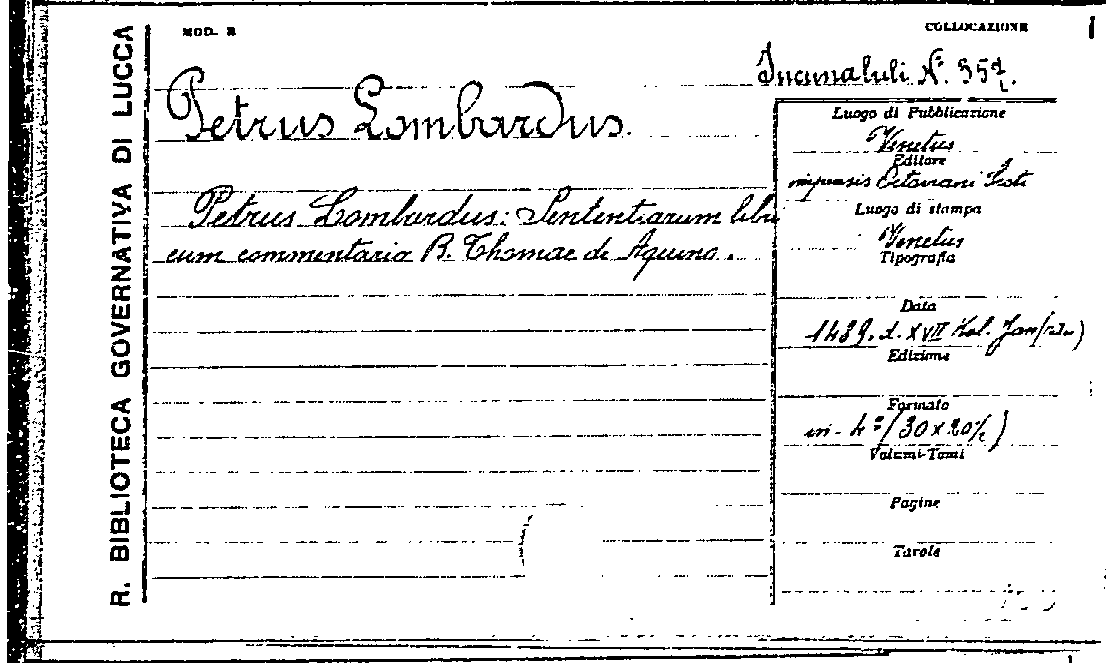 MOD. R
COLLOCAZIONE
R. BIBLIOTECA GOVERNATIVA DI LUCCA
Incunaluli N.
Petrus Lombardus.
Luogo di Pubblicazione
Venetus
Editore
impensis Octaviani
Petrus Lombardus: Sententiarum libri
cum commentario B. Thomae de Aquino.
Luogo di stampa
Venetus
Tipografia
Data
1489. d. XVII Kal. Jan
Edizione
Formato
in - 4º (30 x 20½)
Volumi-Tomi
Pagine
Tavole